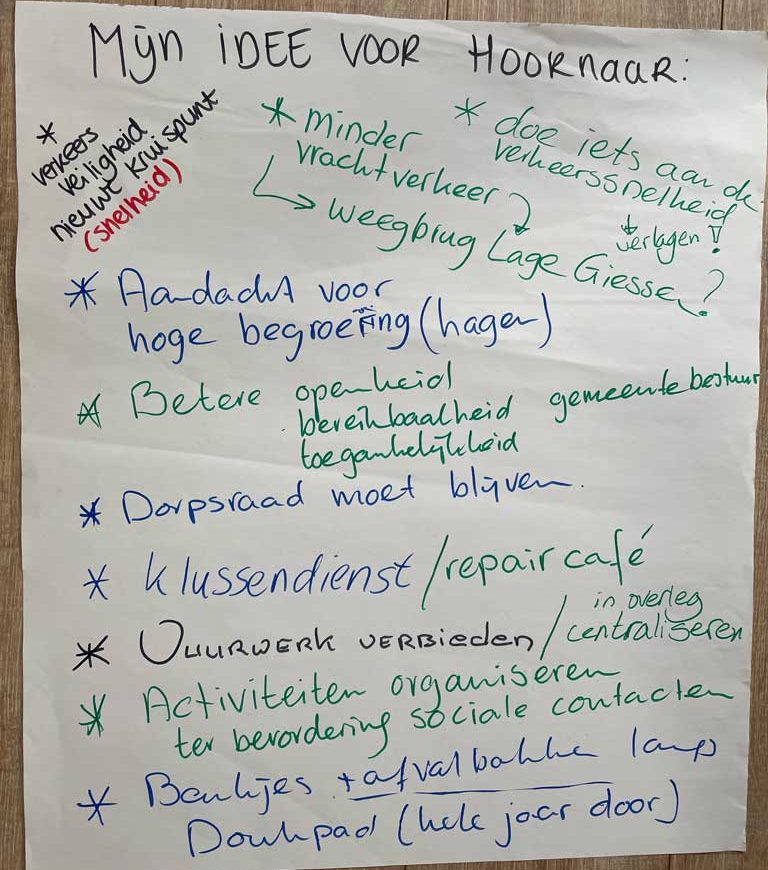 Mijn iDEE VOOR HOORNAAR:
* verkeers
veiligheid
nieuwt kruispunt
(snelheid)
* minder
vrachtverkeer
→ weegbrug Lage Giessen?
* doe iets aan de
verkeerssnelheid
→ verlagen!
* Aandacht voor
hoge begroeiing (hagen)
* Betere openheid
bereikbaalheid gemeentebestuur
toegankelijkheid
* Dorpsraad moet blijven.
* klussendienst / repair café
* VUURWERK VERBIEDEN / in overleg
centraliseren
* Activiteiten organiseren
ter bevordering sociale contacten
* Bankjes + afvalbakken langs
Donkpad (hele jaar door)